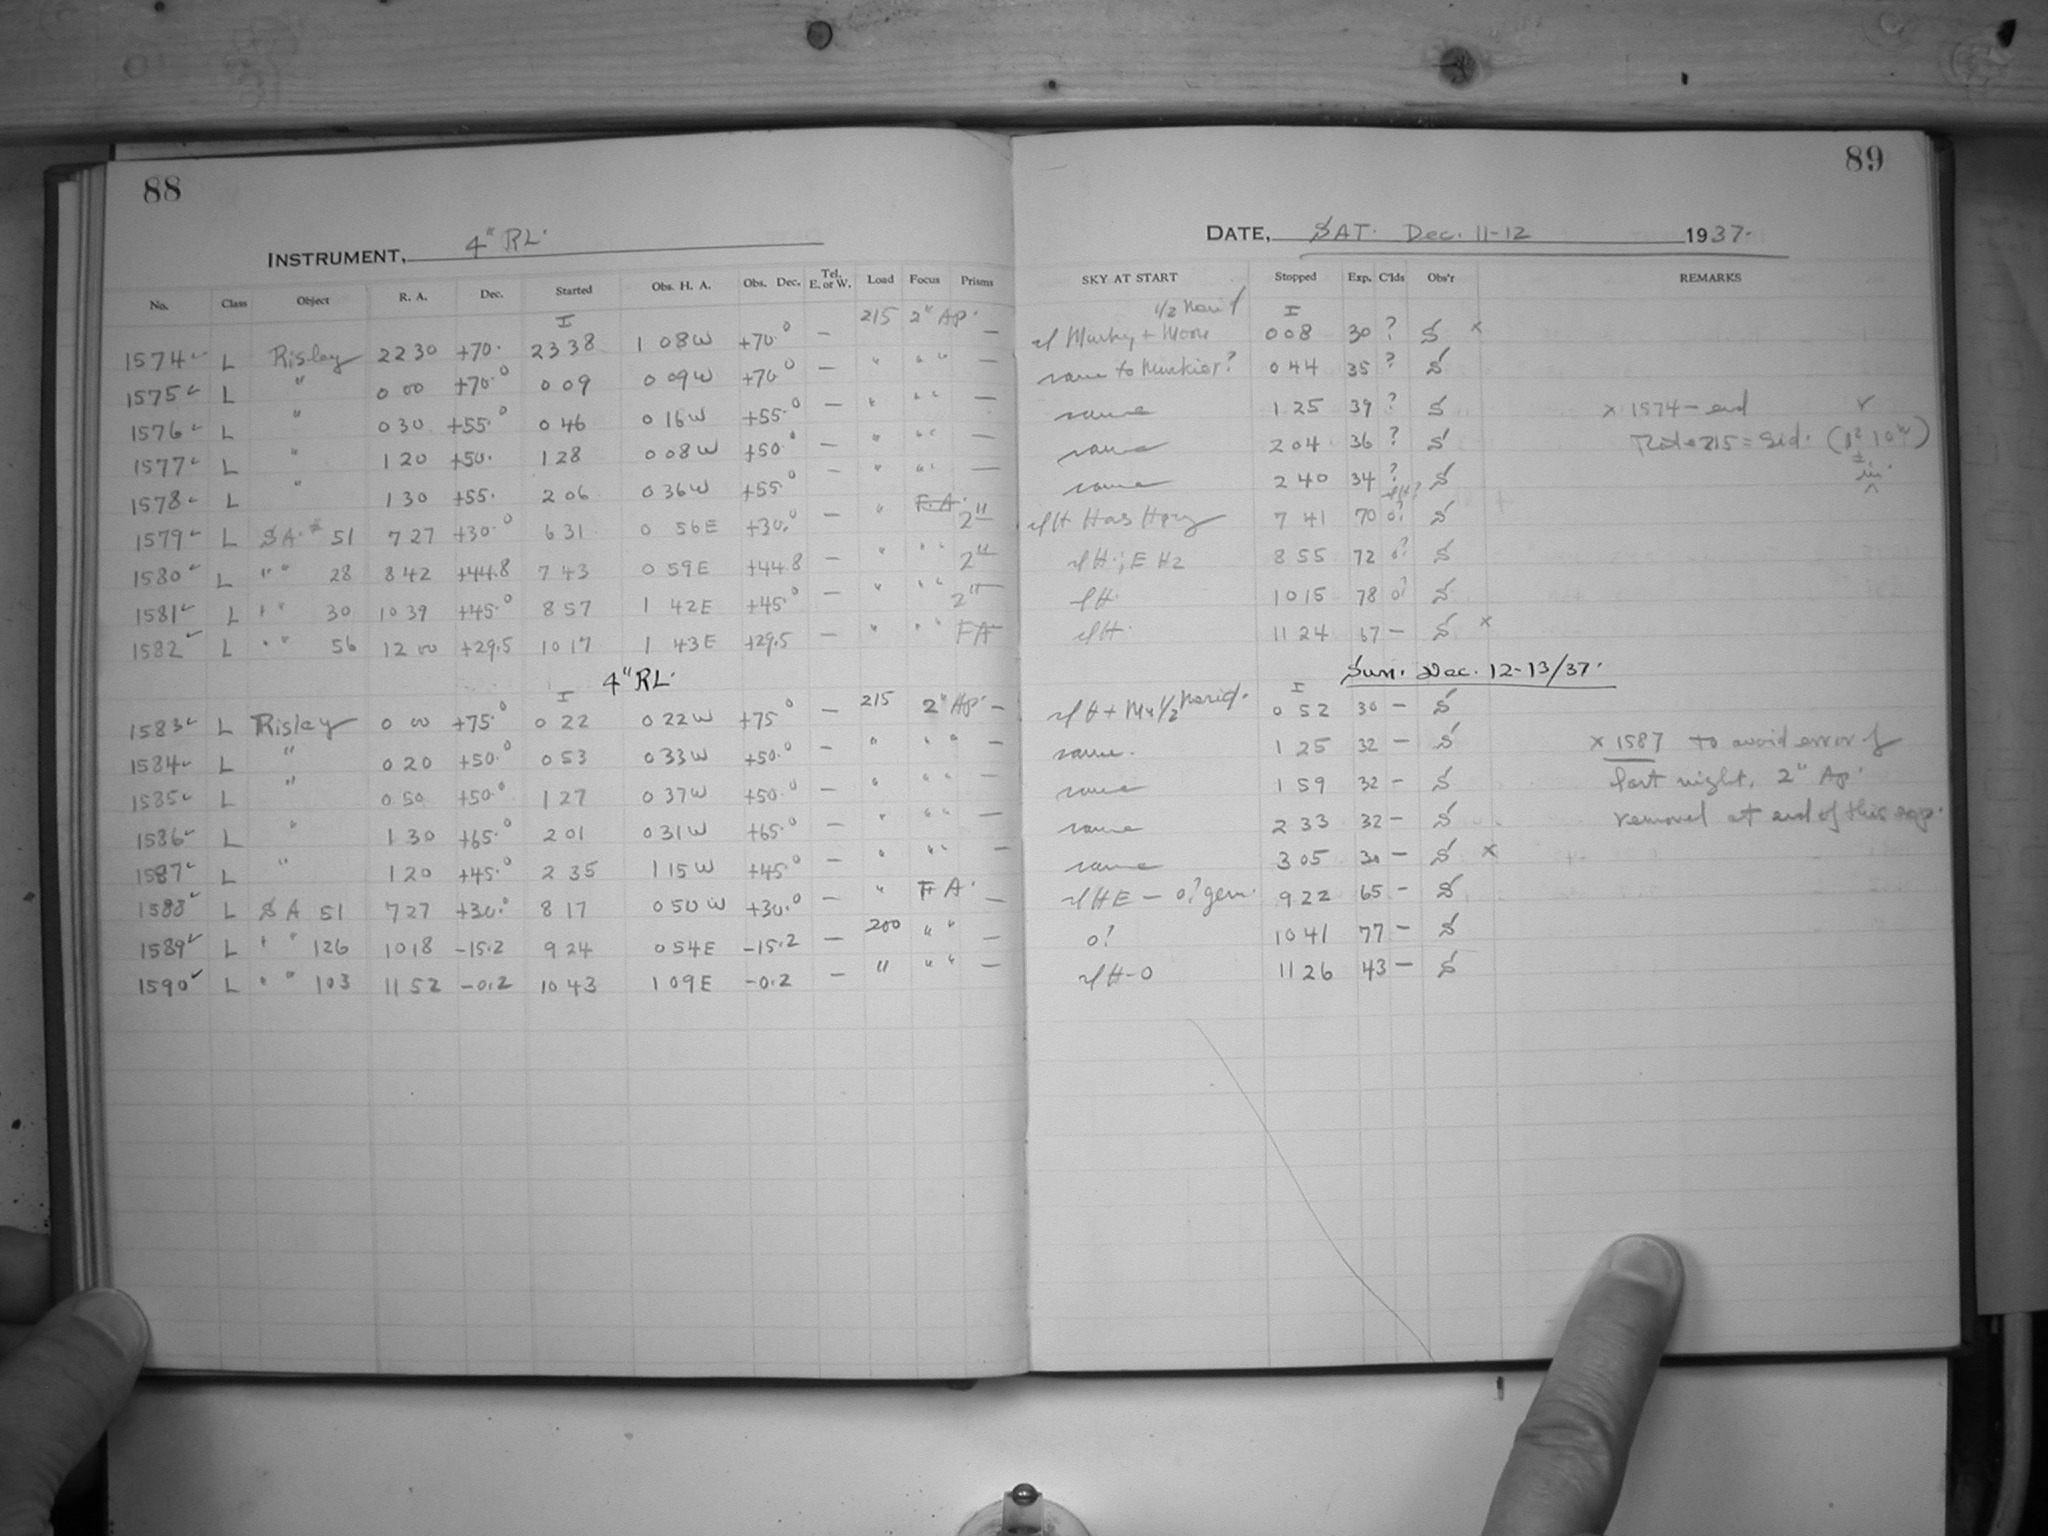 88
INSTRUMENT, 4" RL.
No. Class Object R. A. Dec. Started Obs. H. A. Obs. Dec. Tel. E. or W. Load Focus Prisms
I 215 2" Ap.
1574 L Risley 22 30 +70. 23 38 1 08W +70.0 — —
1575 L " 0 00 +70.0 0 09 0 09W +70.0 — " " " —
1576 L " 0 30 +55.0 0 46 0 16W +55.0 — " " " —
1577 L " 1 20 +50. 1 28 0 08W +50.0 — " " " —
1578 L " 1 30 +55. 2 06 0 36W +55.0 — " " " —
1579 L SA # 51 7 27 +30.0 6 31 0 56E +30.0 — " F.A. 2"
1580 L " " 28 8 42 +44.8 7 43 0 59E +44.8 — " " " 2"
1581 L " " 30 10 39 +45.0 8 57 1 42E +45.0 — " " " 2"
1582 L " " 56 12 00 +29.5 10 17 1 43E +29.5 — " " " FA
4" RL.
I
1583 L Risley 0 00 +75.0 0 22 0 22W +75.0 — 215 2" Ap. —
1584 L " 0 20 +50.0 0 53 0 33W +50.0 — " " " —
1585 L " 0 50 +50.0 1 27 0 37W +50.0 — " " " —
1586 L " 1 30 +65.0 2 01 0 31W +65.0 — " " " —
1587 L " 1 20 +45.0 2 35 1 15W +45.0 — " " " —
1588 L SA 51 7 27 +30.0 8 17 0 50W +30.0 — " F A. —
1589 L " " 126 10 18 -15.2 9 24 0 54E -15.2 — 200 " " —
1590 L " " 103 11 52 -0.2 10 43 1 09E -0.2 — " " " —
89
DATE, SAT. Dec. 11-12 1937.
SKY AT START Stopped Exp. C'lds Obs'r REMARKS
I
0 08 30 ? S x
same to Murkier? 0 44 35 ? S
same 1 25 39 ? S x 1574 - end
same 2 04 36 ? S Rate 215 = Sid.
same 2 40 34 ? S
7 41 70 o? S
H; E Hz 8 55 72 o? S
H. 10 15 78 o? S
H. 11 24 67 — S x
Sun. Dec. 12-13/37.
I
0 52 30 — S
same. 1 25 32 — S x 1587 to avoid error of
same 1 59 32 — S last night, 2" Ap.
same 2 33 32 — S removed at end of this exp.
same 3 05 30 — S x
9 22 65 — S
o? 10 41 77 — S
H-O 11 26 43 — S